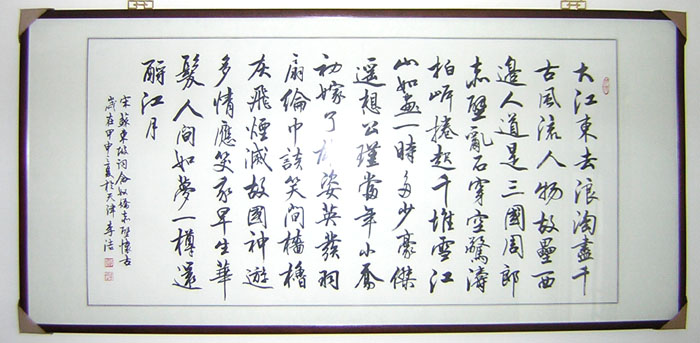 大江東去浪淘盡千
古風流人物故壘西
邊人道是三國周郎
赤壁亂石穿空驚濤
拍岸捲起千堆雪江
山如畫一時多少豪傑
遥想公瑾當年小喬
初嫁了雄姿英發羽
扇綸巾談笑間檣櫓
灰飛煙滅故國神遊
多情應笑我早生華
髮人間如夢一樽還
酹江月
宋蘇東坡詞念奴嬌赤壁懷古
歲在甲申之夏於天津 李